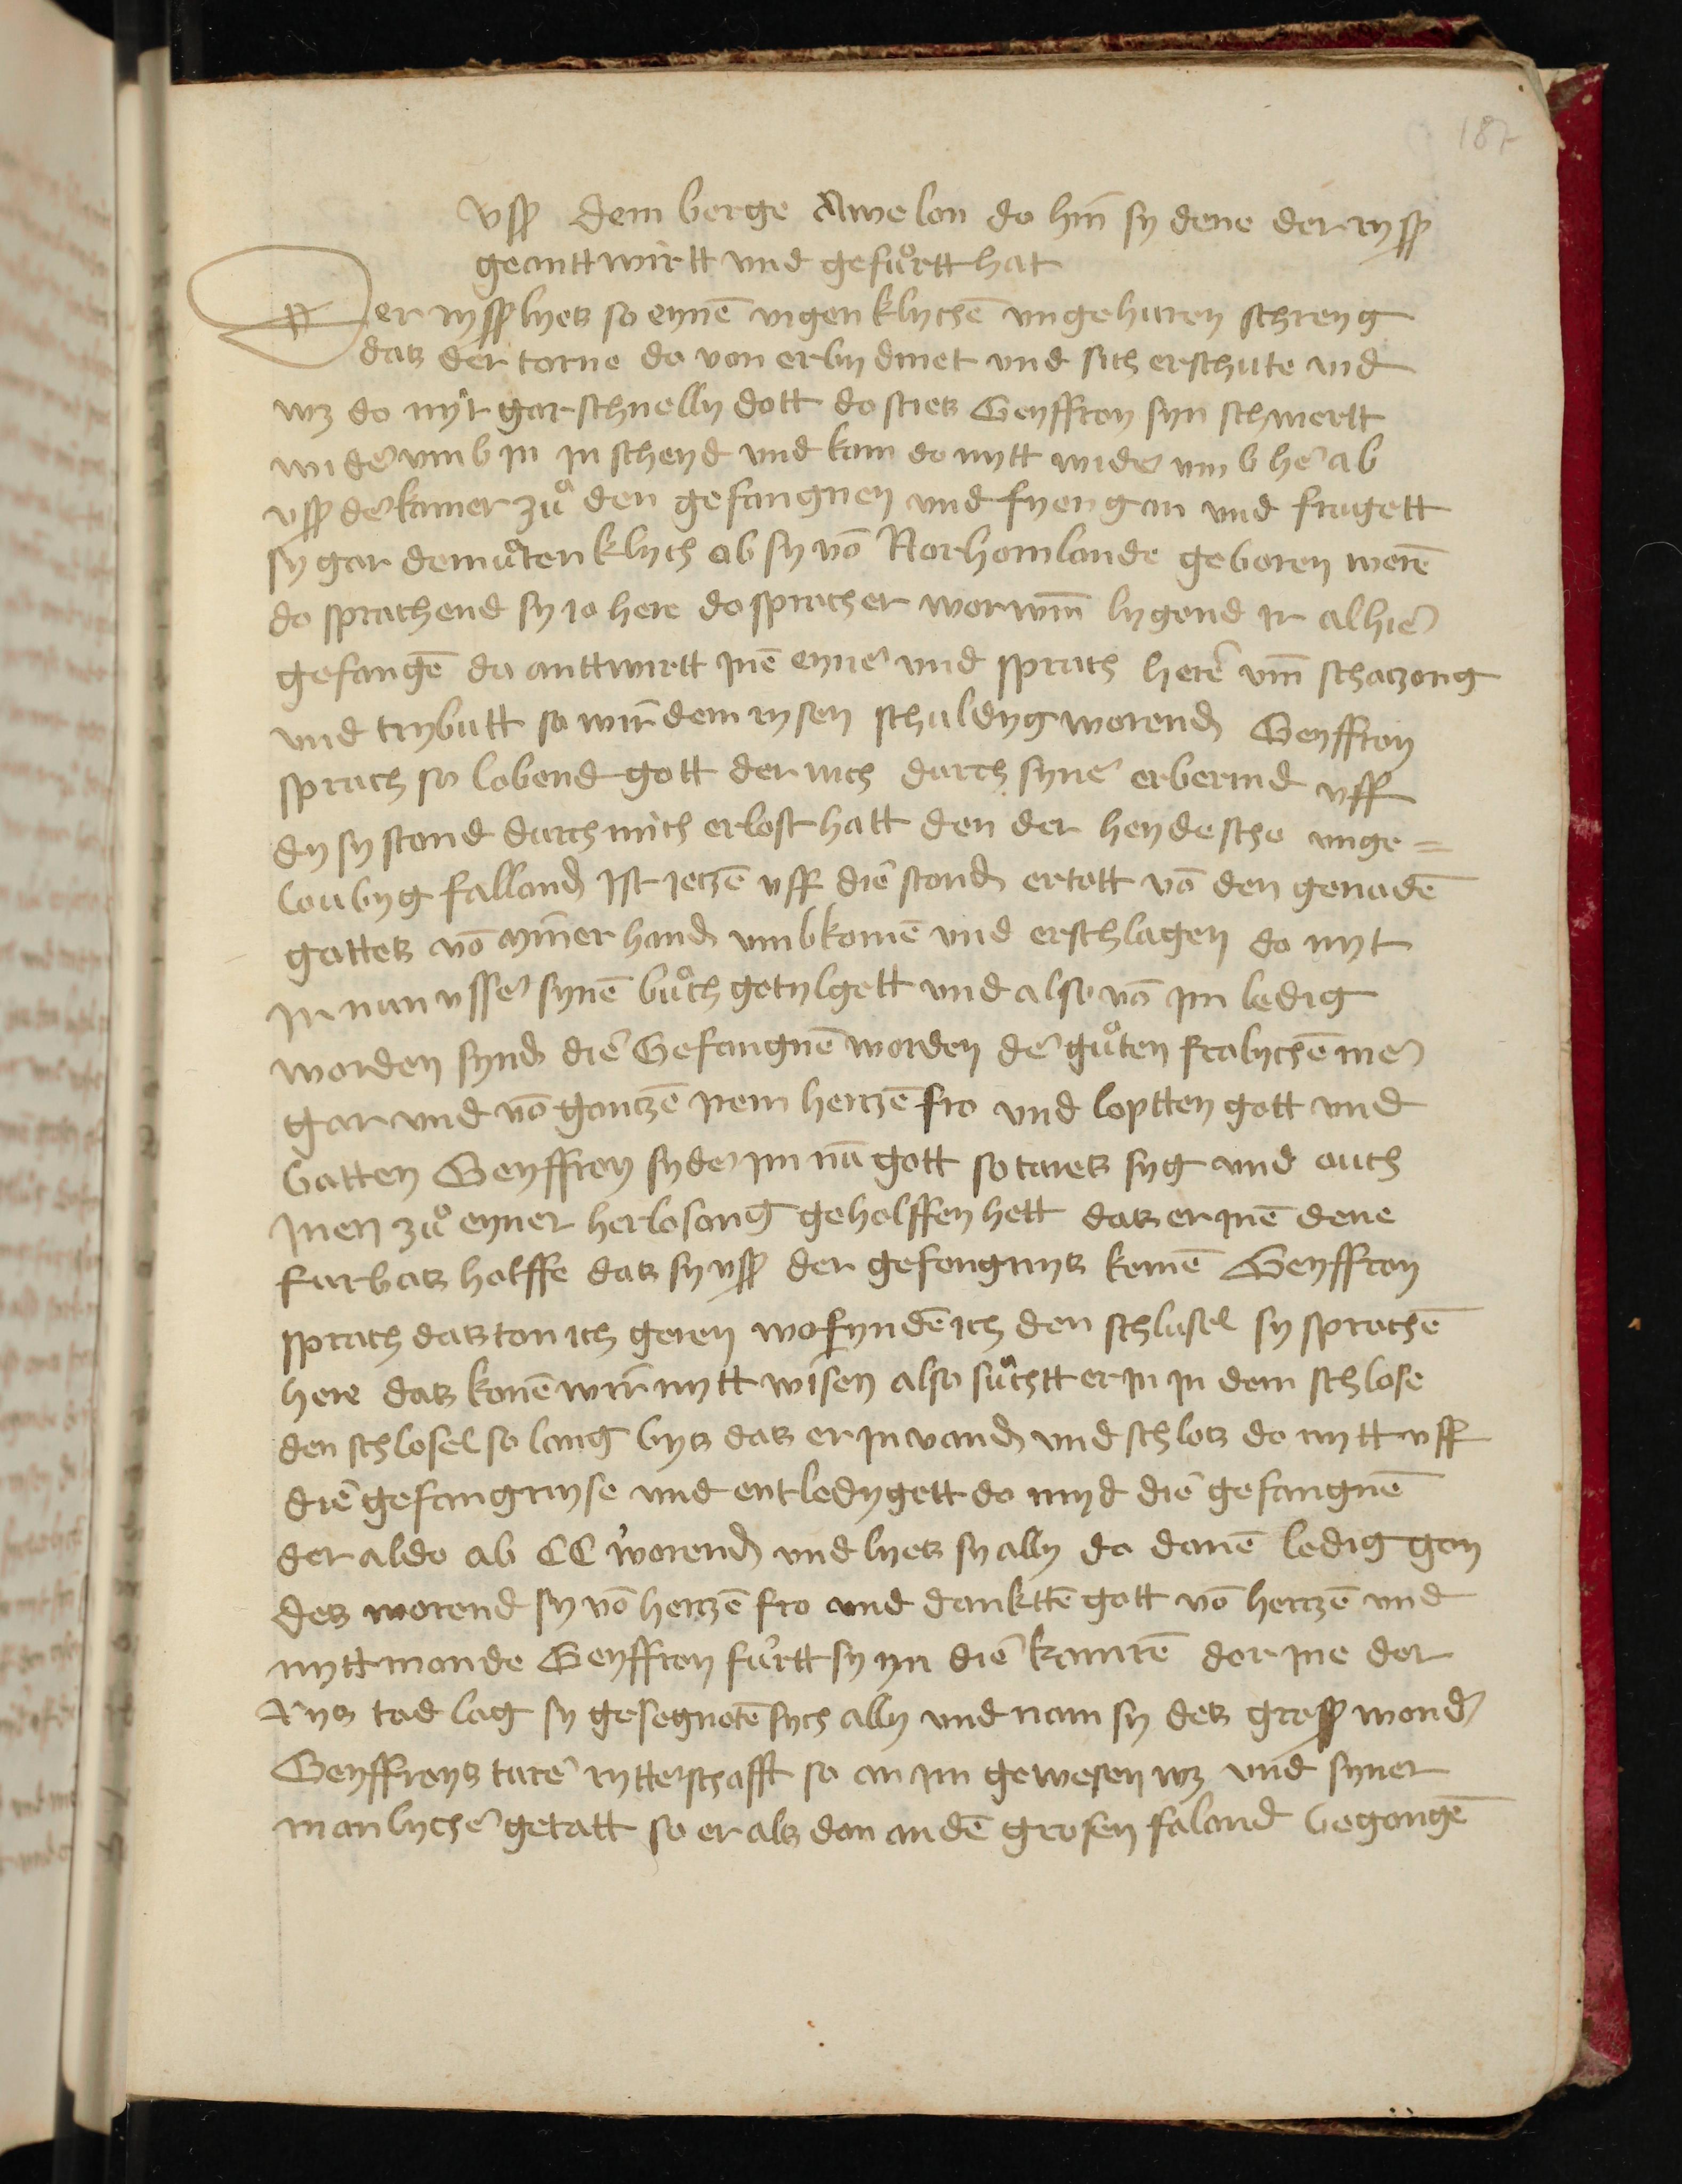 187
vsß dem berge Awelon do hin̄ sy dene der rysß
geanttwirtt vnd gefuͦrtt hat
Der rysß lyes so eynē vigenklychē vngehuren schreyg
das der torne do von erbydmet vnd sich erschute vnd
wz do myt gar schnelly dott do sties Geyffroy syn schwertt
widervmb in in scheyd vnd kam do mytt wider vmb herab
vsß der kamer zuͦ den gefangnen vnd fyeng an vnd fragett
sy gar demuͦtenklych ab sy vō Norhomlande geboren werē
do sprachend sy jo here do sprach er worwm̄ lygend ir alhier
gefangē do anttwirtt inē eyner vnd sprach herē vm̄ schatzong
vnd trybutt so wir dem rysen schuldyg worend Geyffroy
sprach so lobend gott der vich durch syner erbermd vff
dy systond durch mich erlost hatt den der heydesche vnge=
loubyg falland Ist ietzē vff die stond ertott vō den genodē
gottes vō myner hand vmbkomē vnd erschlagen do myt
ir nun vsser synē buͦch getylgett vnd also vō im ledig
worden synd die Gefangnē worden der guͦten frolychē mer
gar vnd vō gantzē irem hertzē fro vnd loptten gott vnd
batten Geyffroy syder im nū gott so tures syg vnd ouch
Inen zuͦ eyner herlosong geholffen hett das er inē dene
furbas holffe das sy vsß der gefengnys kemē Geyffroy
sprach das ton ich geren wo fyndē ich den schlusel sy sprochē
here das konē wir nytt wisen also suͦchtt er in in dem schlose
den schlosel so lang bys das er in vand vnd schlos do mytt vff
die gefangnyse vnd entledygett do myd die gefangnē
der aldo ab CC worend vnd lyes sy ally do danē ledig gon
des worend sy vō hertzē fro vnd dankttē gott vō hertzē vnd
mytt monde Geyffroy furtt sy yn die kamrē dor ine der
Rys tod lag sy gesegnotē sych ally vnd nam sy des grosß wonder
Geyffroys turer rytterschafft so an im gewesen wz vnd syner
manlycher getatt so er als don an dē grosen faland begangē